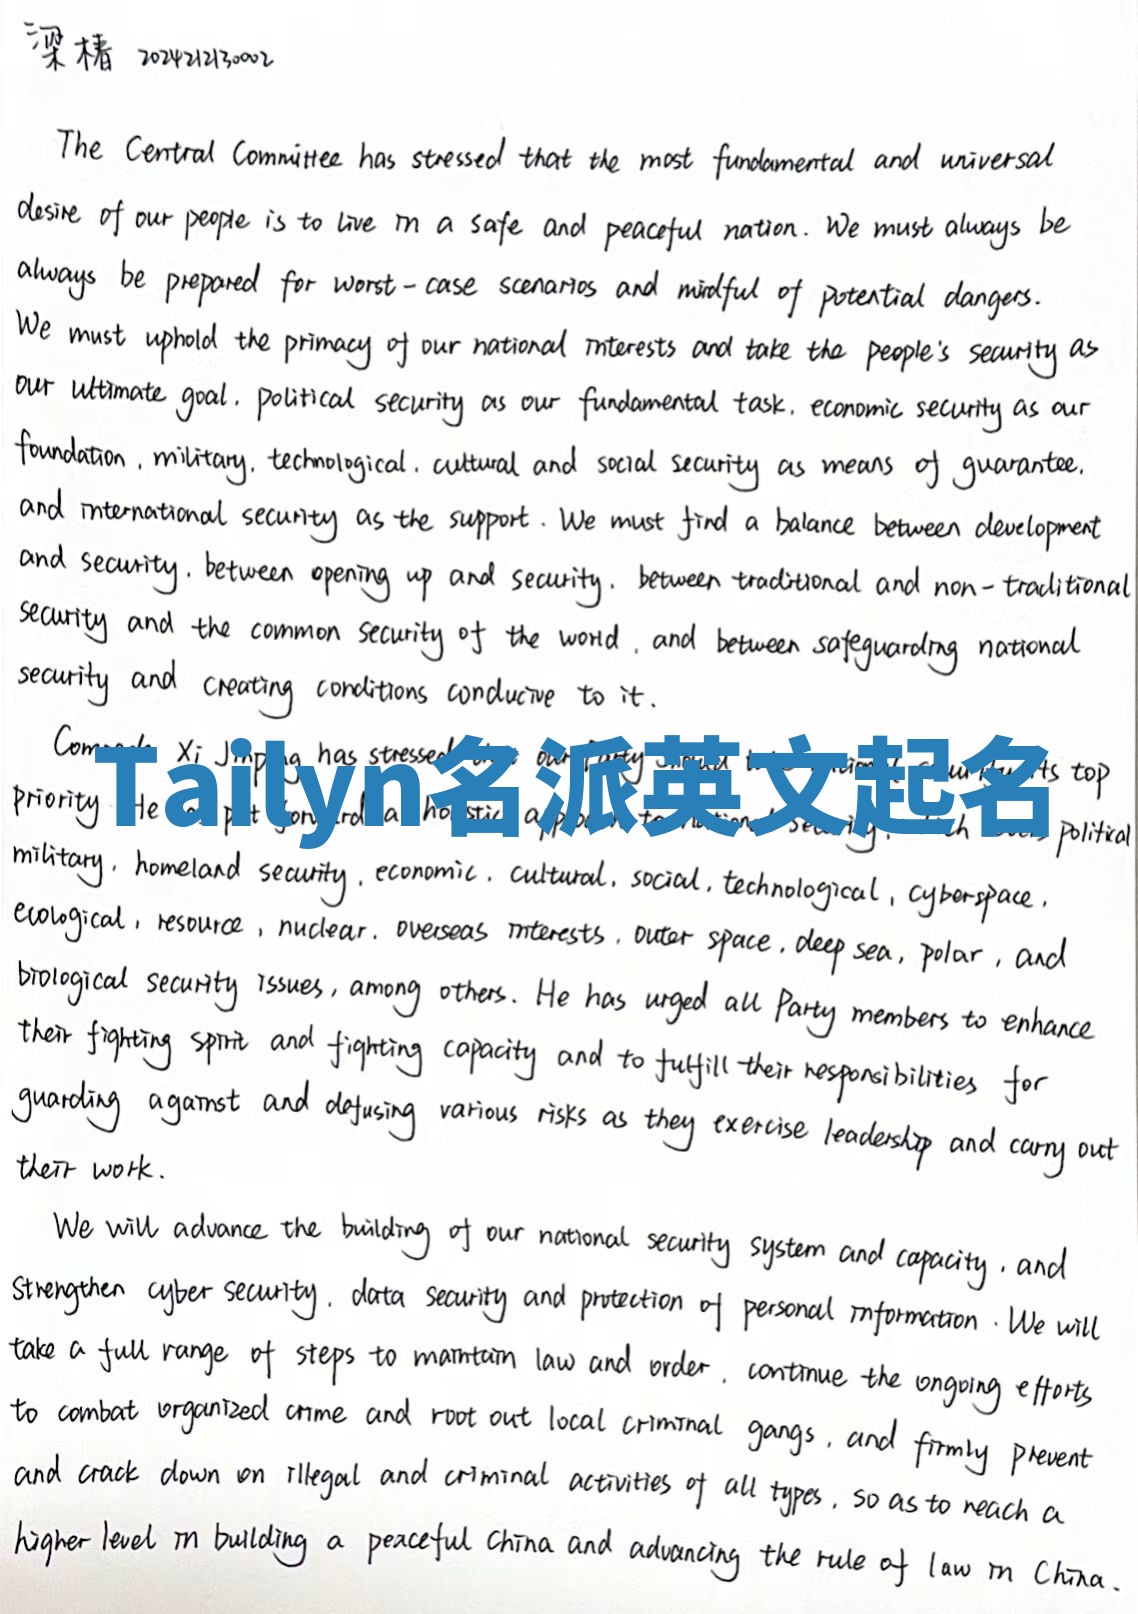 梁椿 2024212130002
The Central Committee has stressed that the most fundamental and universal
desire of our people is to live in a safe and peaceful nation. We must always be
always be prepared for worst-case scenarios and mindful of potential dangers.
We must uphold the primacy of our national interests and take the people's security as
our ultimate goal, political security as our fundamental task, economic security as our
foundation, military, technological, cultural and social security as means of guarantee,
and international security as the support. We must find a balance between development
and security, between opening up and security, between traditional and non-traditional
security and the common security of the world, and between safeguarding national
security and creating conditions conducive to it.
Xi Jinping has stressed our Party top
Tailyn名派英文起名
priority He put forward a holistic political
military, homeland security, economic, cultural, social, technological, cyberspace,
ecological, resource, nuclear, overseas interests, outer space, deep sea, polar, and
biological security issues, among others. He has urged all Party members to enhance
their fighting spirit and fighting capacity and to fulfill their responsibilities for
guarding against and defusing various risks as they exercise leadership and carry out
their work.
We will advance the building of our national security system and capacity, and
strengthen cyber security, data security and protection of personal information. We will
take a full range of steps to maintain law and order, continue the ongoing efforts
to combat organized crime and root out local criminal gangs, and firmly prevent
and crack down on illegal and criminal activities of all types, so as to reach a
higher level in building a peaceful China and advancing the rule of law in China.